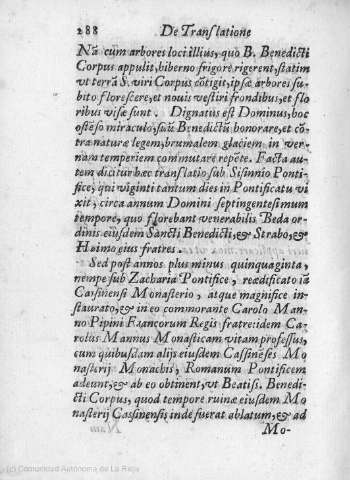 288 De Translatione
Nã cùm arbores loci illius, quò B. Benedicti
Corpus appulit, hiberno frigore rigerent, statim
vt terrã S. viri Corpus cõtigit, ipsæ arbores su-
bito florescere, et nouis vestiri frondibus, et flo
ribus visæ sunt. Dignatus est Dominus, hoc
ostẽso miraculo, suũ Benedictũ honorare, et cõ-
tra naturæ legem, brumalem glaciem in ver-
nam temperiem commutare repẽte. Facta au-
tem dicitur hæc translatio sub Sisinnio Ponti-
fice, qui viginti tantum dies in Pontificatu vi
xit, circa annum Domini septingentesimum
tempore, quo florebant venerabilis Beda or-
dinis eiusdem Sancti Benedicti, & Strabo, &
Haimo eius fratres.
Sed post annos plus minus quinquaginta,
nempe sub Zacharia Pontifice, reædificato iã
Cassinensi Monasterio, atque magnifice in-
staurato, & in eo commorante Carolo Man-
no Pipini Francorum Regis fratre: idem Ca-
rolus Mannus Monasticam vitam professus,
cum quibusdam alijs eiusdem Cassinẽses Mo
nasterij Monachis, Romanum Pontificem
adeunt, & ab eo obtinent, vt Beatiss. Benedi-
cti Corpus, quod tempore ruinæ eiusdem Mo
nasterij Cassinensis inde fuerat ablatum, & ad
Mo-
(c) Comunidad Autónoma de La Rioja